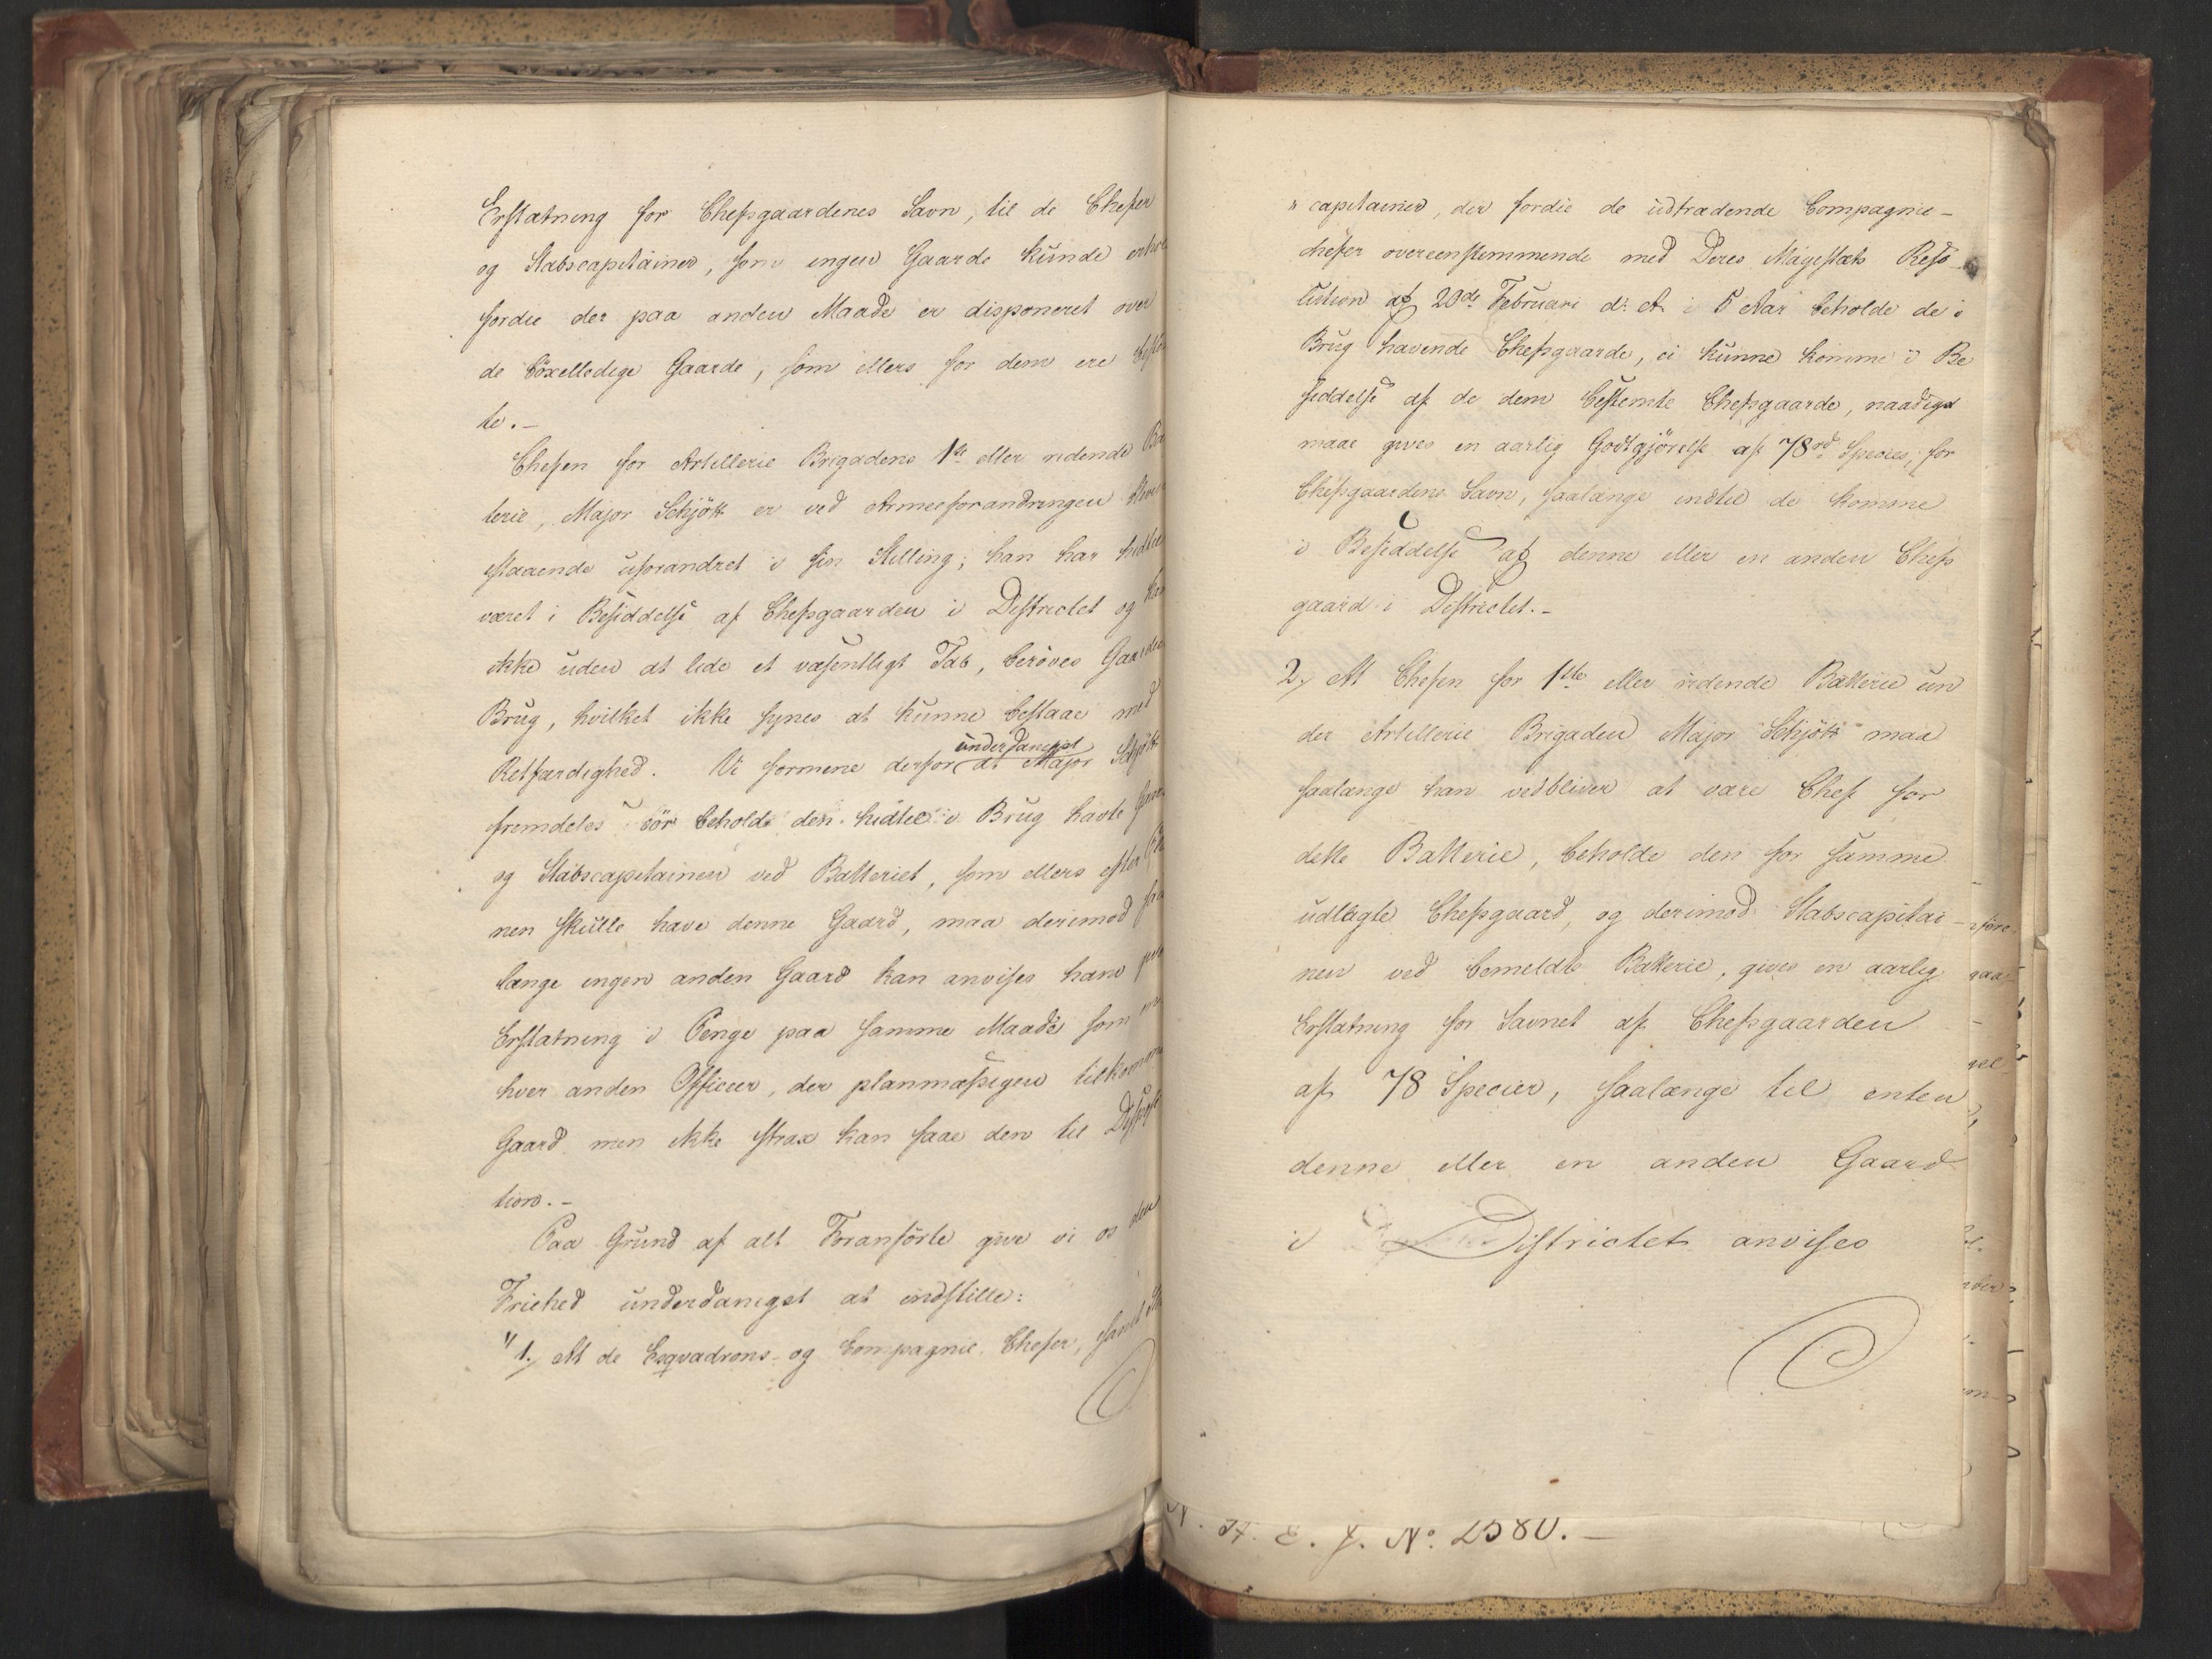 Erstatning for Chefsgaardenes Savn, til de Chefer
og Stabscapitainer, som ingen Gaarde kunde
fordie der paa anden Maade er disponeret over
de böxelledige Gaarde, som ellers for dem ere
te.-
Chefen for Artillerie Brigadens 1ste eller ridende Bat
terie, Major Schjött er ved Armeeforandringen
staaende uforandret i sin Stilling; han har hidtil
været i Besiddelse af Chefsgaarden i Districtet og kan
ikke uden at lide et væsentligt Tab, beröves Gaardens
Brug, hvilket ikke synes at kunne bestaae med
underdanigst
Retfærdighed. Vi formene derfor at Major Schjött
fremdeles bör beholde den hidtil i Brug havte
og Stabscapitainen ved Batteriet, som ellers efter
nen skulle have denne Gaard, maa derimod saa
længe ingen anden Gaard kan anvises ham
Erstatning i Penge paa samme Maade som
hver anden Officeer, der planmæssigen tilkommer
Gaard men ikke strax kan faae den til Disposi
tion.-
Paa Grund af alt Foranförte give vi os den
Friehed underdanigst at indstille:
"1, At de Esqvadrons- og Compagnie Chefer, samt
" capitainer, der fordie de udtrædende Compagnie-
chefer overeenstemmende med Deres Majestæts Reso-
lution af 20de Februari d: A. i 5 Aar beholde de i
Brug havende Chefsgaarde, ei kunne komme i Be
siddelse af de dem bestemte Chefsgaarde, naadigst
maae gives en aarlig Godtgjörelse af 78rd Species, for
Chefsgaardens Savn, saalænge indtil de komme
i Besiddelse af denne eller en anden Chefs
gaard i Districtet.-
2, At Chefen for 1ste eller ridende Batterie un
der Artillerie Brigaden Major Schjött maa
saalænge han vedbliver at være Chef for
dette Batterie, beholde den for samme
udlagte Chefsgaard, og derimod Stabscapitai-
nen ved bemeldte Batterie, gives en aarlig
Erstatning for Savnet af Chefsgaarden
af 78 Specier, saalænge til enten
denne eller en anden Gaard
i Districtet anvises
E. J. No. 2580.-